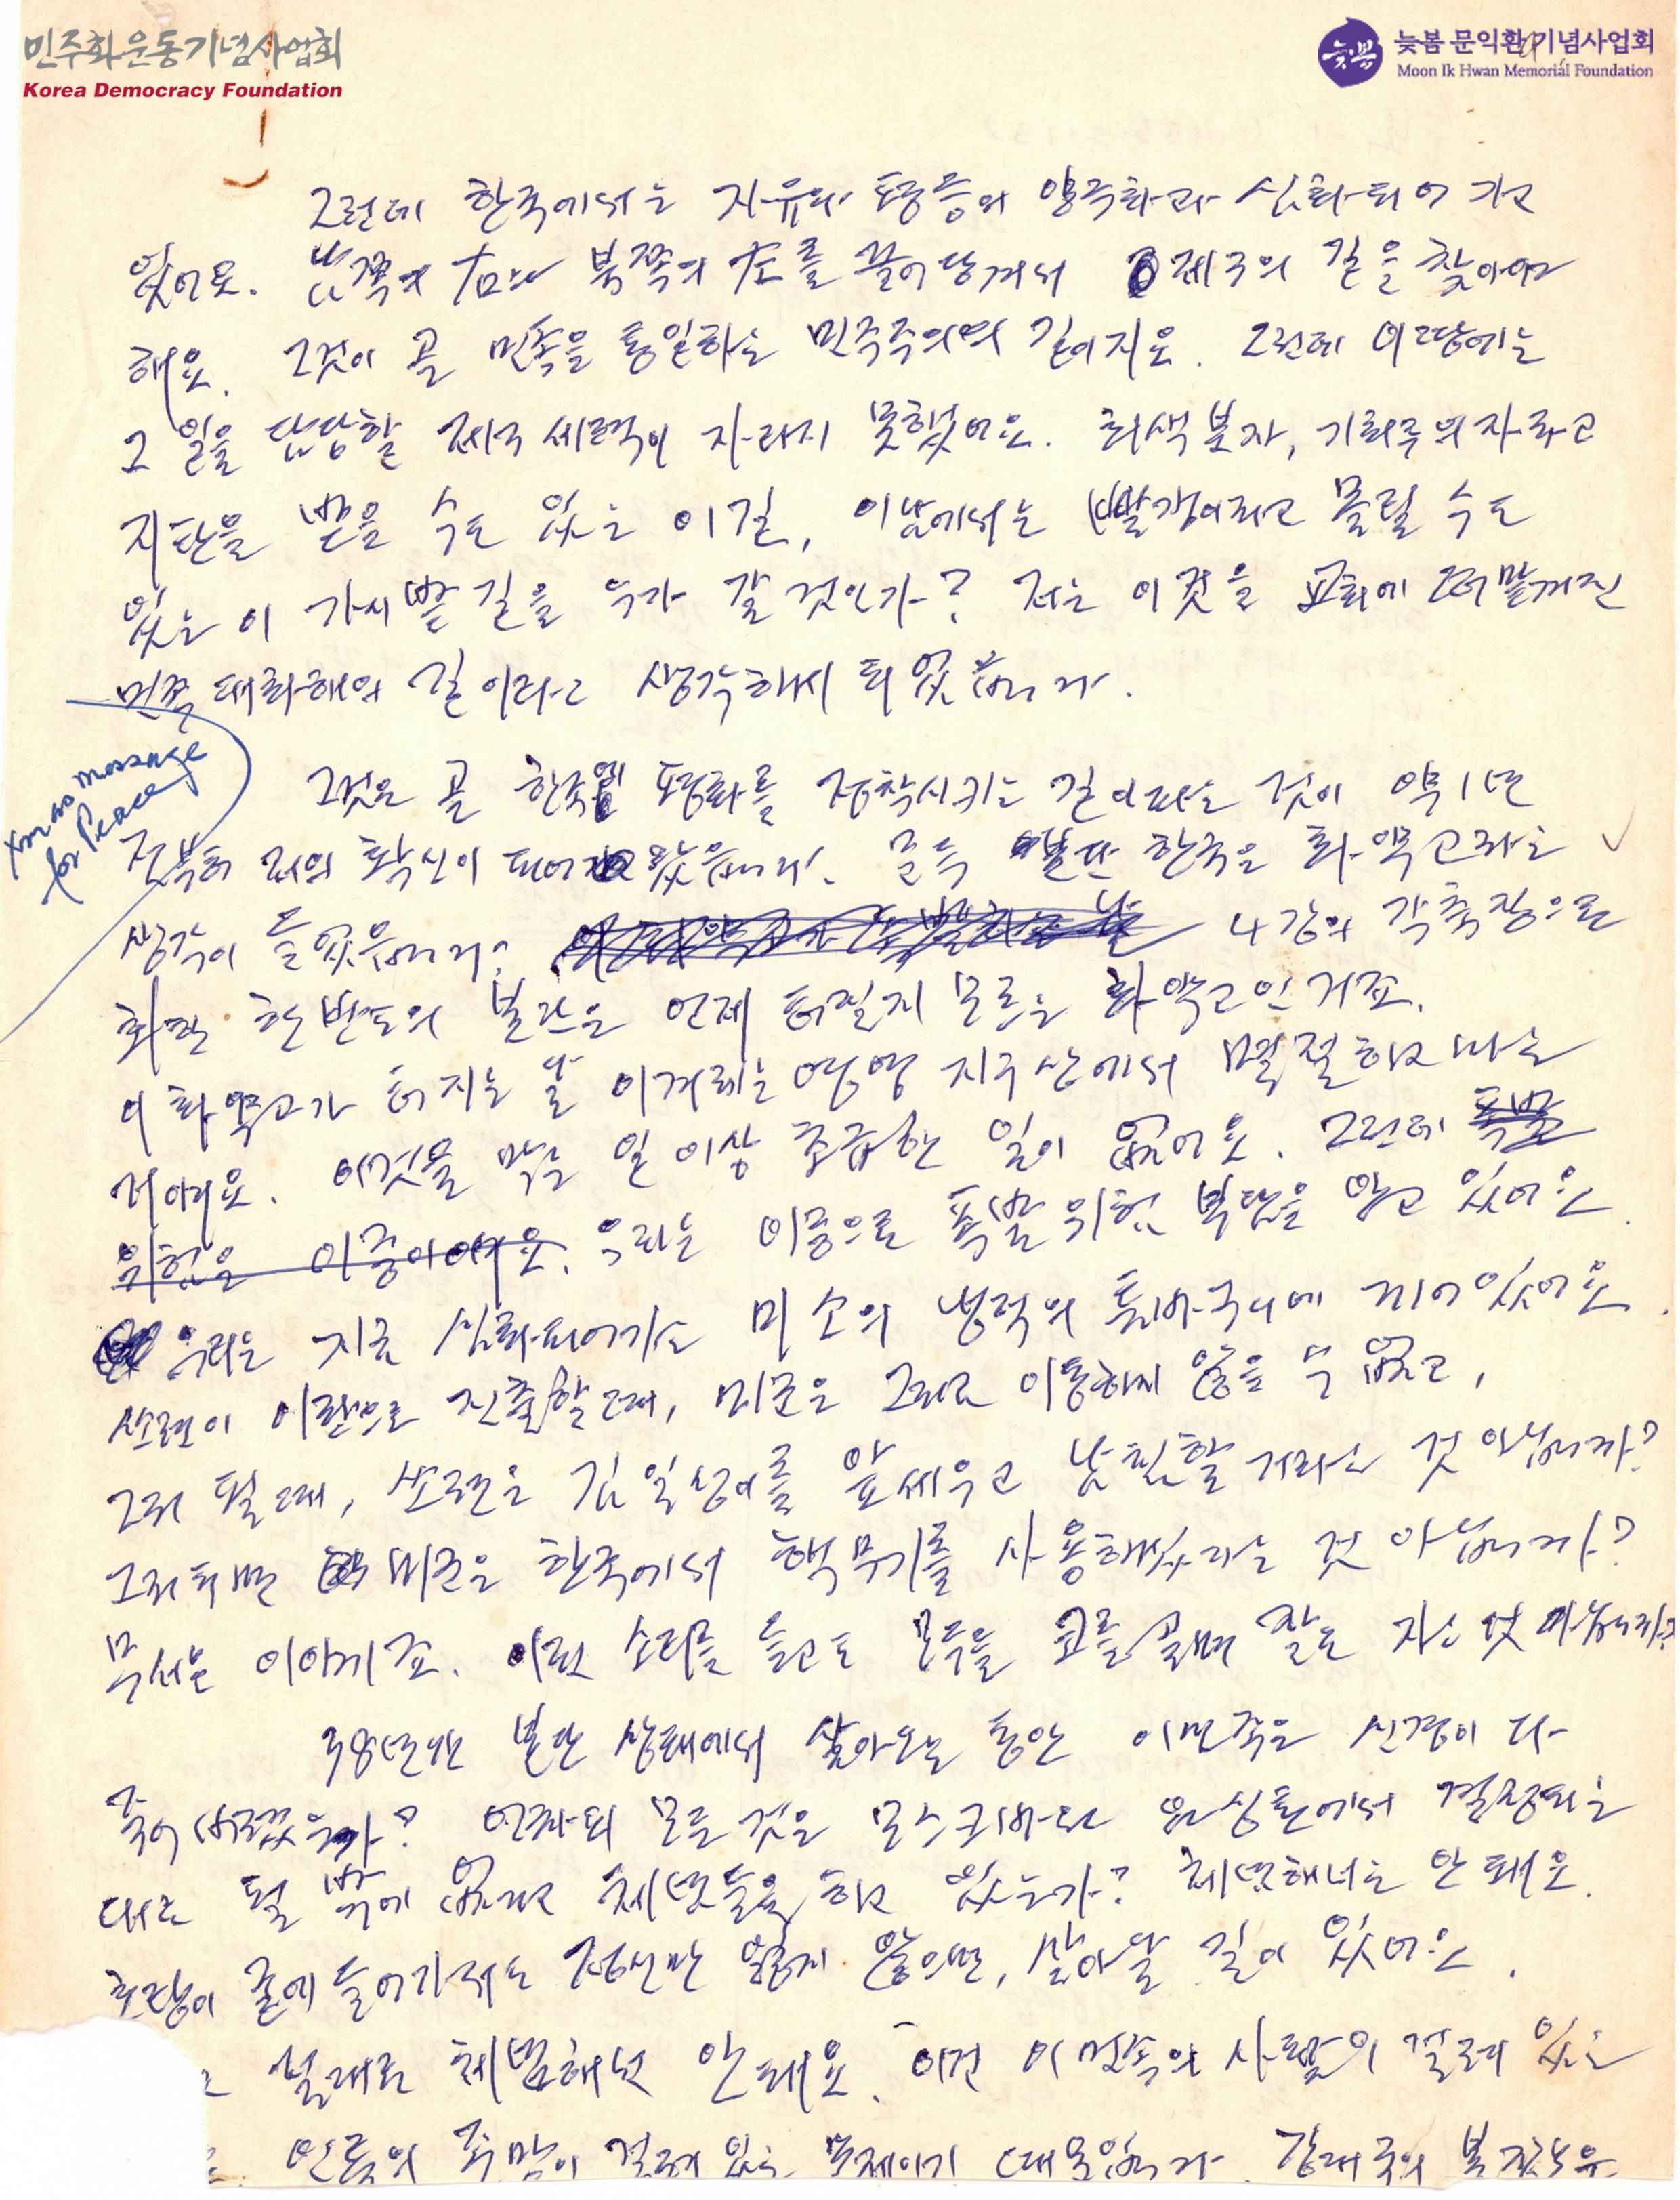 민주화운동기념사업회
Korea Democracy Foundation
늦봄 문익환기념사업회
Moon Ik Hwan Memorial Foundation
그런데 한국에서는 자유와 평등의 양극화가 심화되어 가고
있어요. 남쪽의 右와 북쪽의 左를 끌어당겨서 제3의 길을 찾아야
해요. 그것이 곧 민족을 통일하는 민주주의의 길이지요. 그런데 이 땅에는
그 일을 담당할 제3 세력이 자라지 못했어요. 회색분자, 기회주의자라고
지탄을 받을 수도 있는 이 길, 이남에서는 빨갱이라고 몰릴 수도
있는 이 가시밭 길을 누가 갈 것인가? 저는 이것을 교회에 떠맡겨진
민족 대화해의 길이라고 생각하게 되었습니다.
Xmas message
for Peace
그것은 곧 한국에 평화를 정착시키는 길이라는 것이 약 1년
전부터 저의 확신이 되어 왔습니다. 문득 분단 한국은 화약고라는
생각이 들었습니다. 4강의 각축장으로
화한 한반도의 분단은 언제 터질지 모르는 화약고인 거죠.
이 화약고가 터지는 날 이 겨레는 영영 지구상에서 멸절하고 마는
거예요. 이것을 막는 일 이상 중요한 일이 없어요. 그런데 폭발
위험은 이중이에요. 우리는 이중으로 폭발 위험 부담을 안고 있어요.
우리는 지금 심화되어가는 미 소의 냉전의 톱니바퀴에 끼어있어요.
쏘련이 이란으로 진출할 때, 미군은 그리로 이동하지 않을 수 없고,
그리 될 때, 쏘련은 김일성이를 앞세우고 남침할 거라는 것 아닙니까?
그리 되면 미군은 한국에서 핵무기를 사용하겠다는 것 아닙니까?
무서운 이야기죠. 이런 소리를 듣고도 모두들 코를 골며 잘도 자는 것 아닙니까?
38년간 분단 상태에서 살아오는 동안 이 민족은 신경이 다
죽어 버렸는가? 어차피 모든 것은 모스크바와 워싱톤에서 결정되는
대로 될 밖에 없다고 체념들을 하고 있는가? 체념해서는 안 돼요.
호랑이 굴에 들어가서도 정신만 잃지 않으면, 살아날 길이 있어요.
절대로 체념해선 안 돼요. 이건 이 민족의 사활이 걸려 있는
인류의 죽맘이 걸려 있는 문제이기 때문입니다. 강대국의